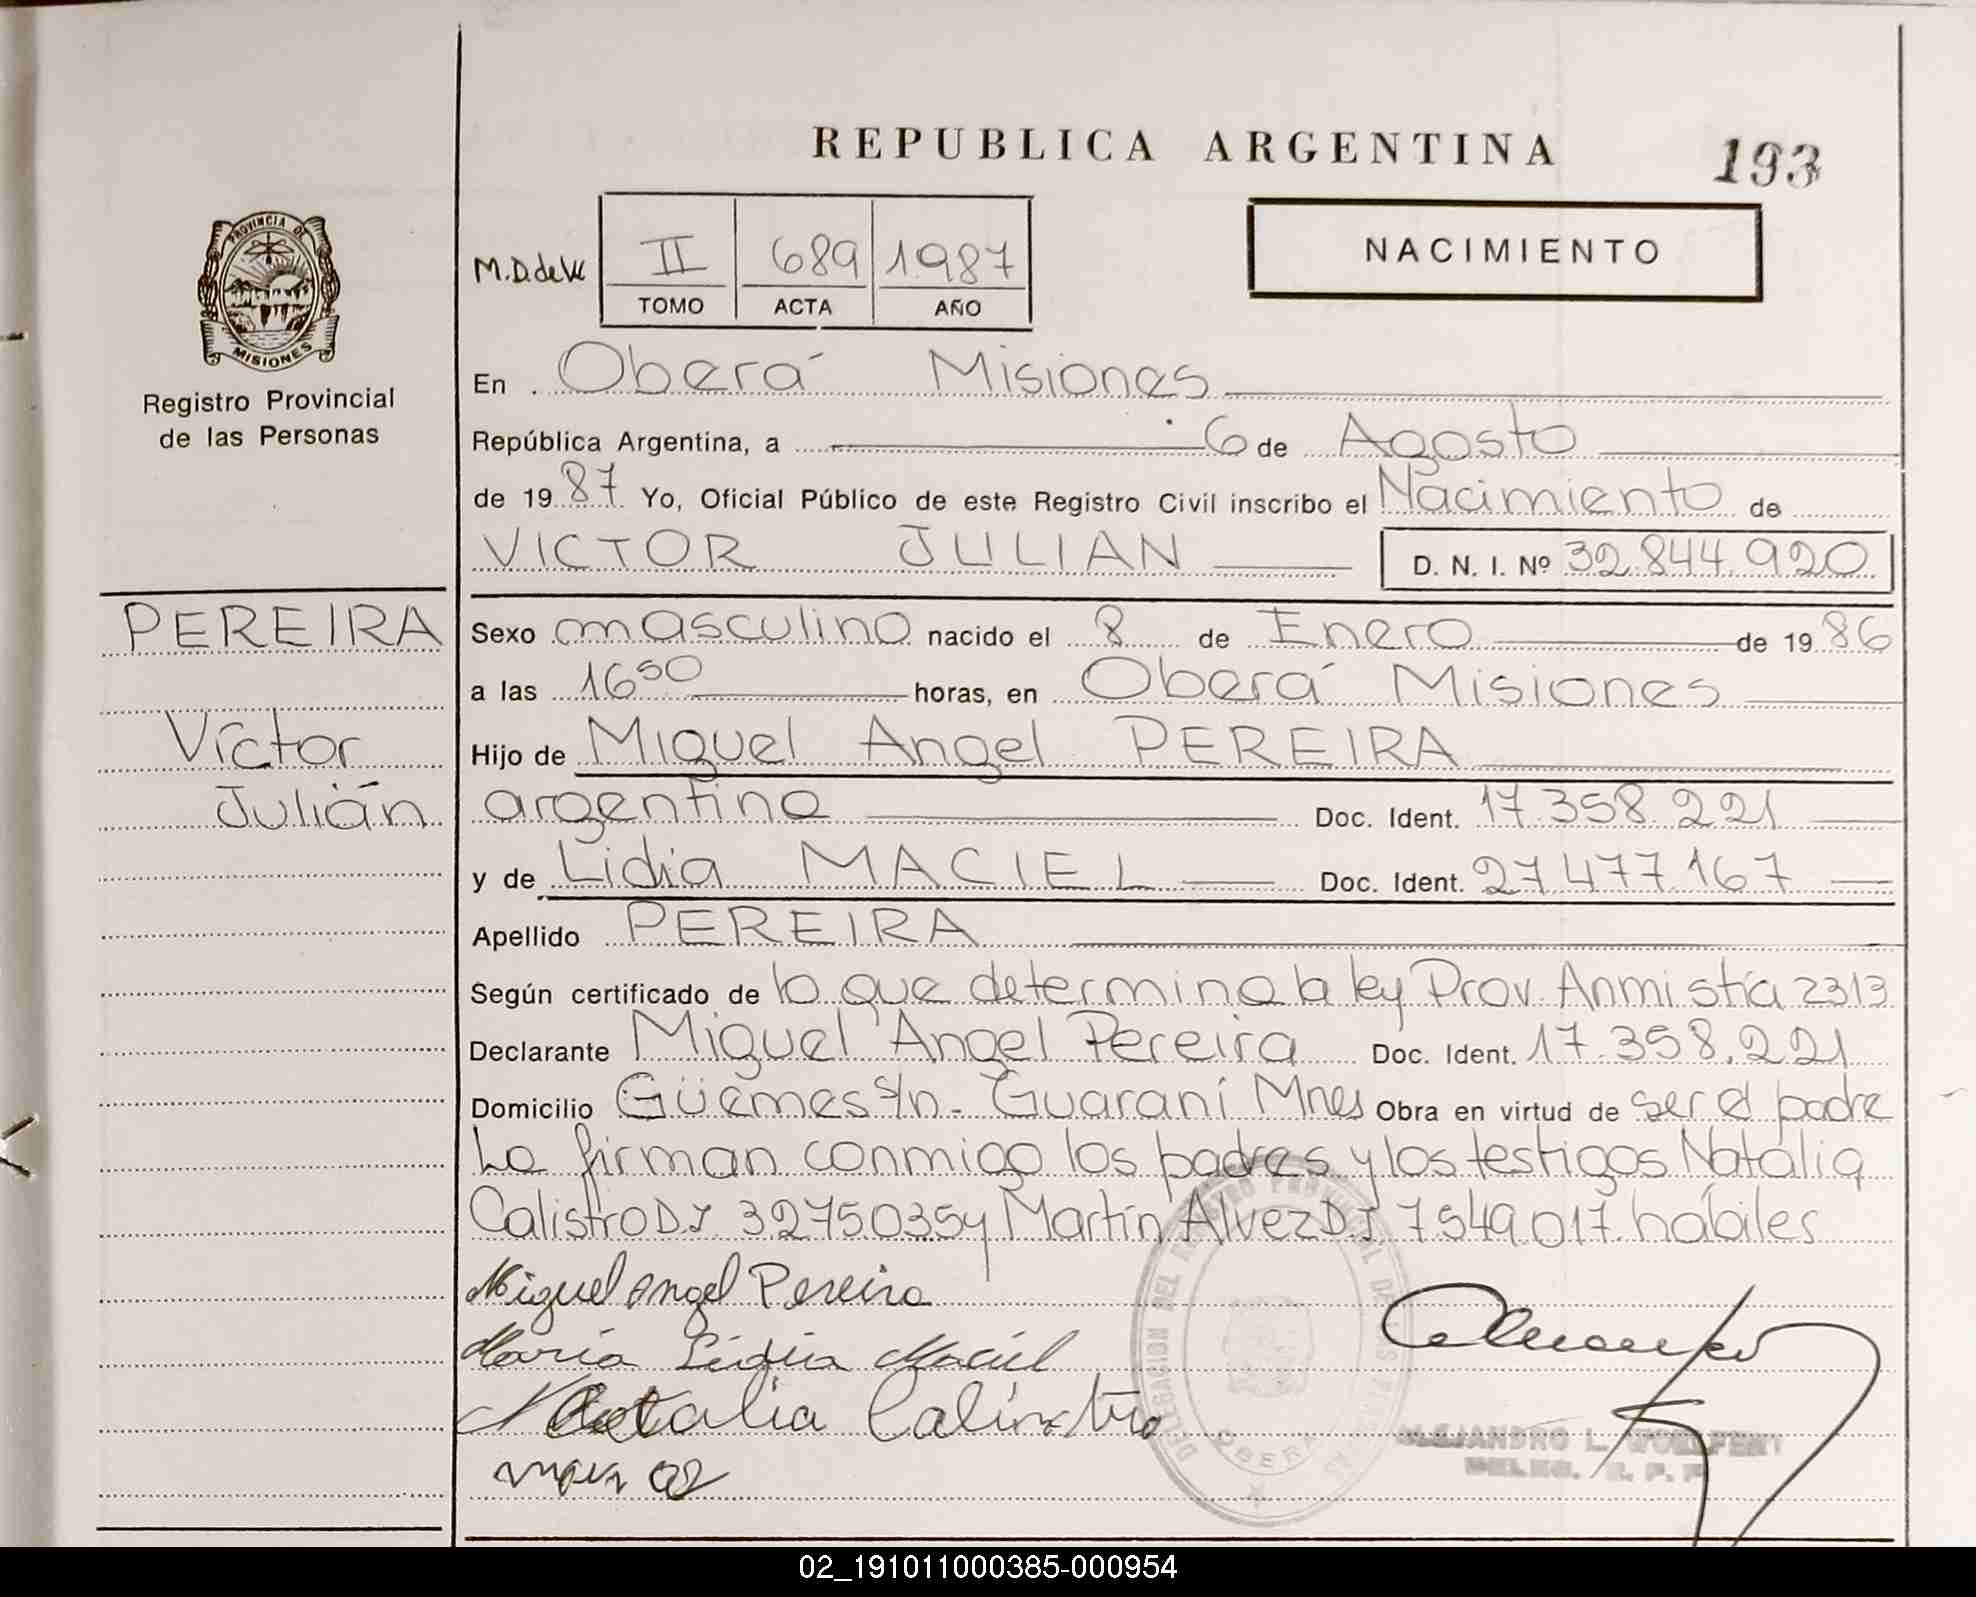 REPUBLICA ARGENTINA
193
PROVINCIA DE
MISIONES
Registro Provincial
de las Personas
M.D.de
II 689 1987
TOMO ACTA AÑO
NACIMIENTO
En Oberá Misiones
República Argentina, a 6 de Agosto
de 1987. Yo, Oficial Público de este Registro Civil inscribo el Nacimiento de
VICTOR JULIAN D. N. I. Nº 32.844.920
PEREIRA
Víctor
Julián
Sexo masculino nacido el 8 de Enero de 1986
a las 16⁵⁰ horas, en Oberá Misiones
Hijo de Miguel Angel PEREIRA
argentino Doc. Ident. 17.358.221
y de Lidia MACIEL Doc. Ident. 27477167
Apellido PEREIRA
Según certificado de lo que determina la ley Prov. Anmistía 2313
Declarante Miguel Angel Pereira Doc. Ident. 17.358.221
Domicilio Güemes s/n - Guaraní Mnes Obra en virtud de ser el padre
La firman conmigo los padres y los testigos Natalia
Calistro D.I 32750354 y Martín Alvez D.I 7549.017. hábiles
Miguel Angel Pereira
María Lidia Maciel
Natalia Calistro
DELEGACION DEL REGISTRO PROVINCIAL DE LAS PERSONAS
OBERA
ALEJANDRO L.
02_191011000385-000954